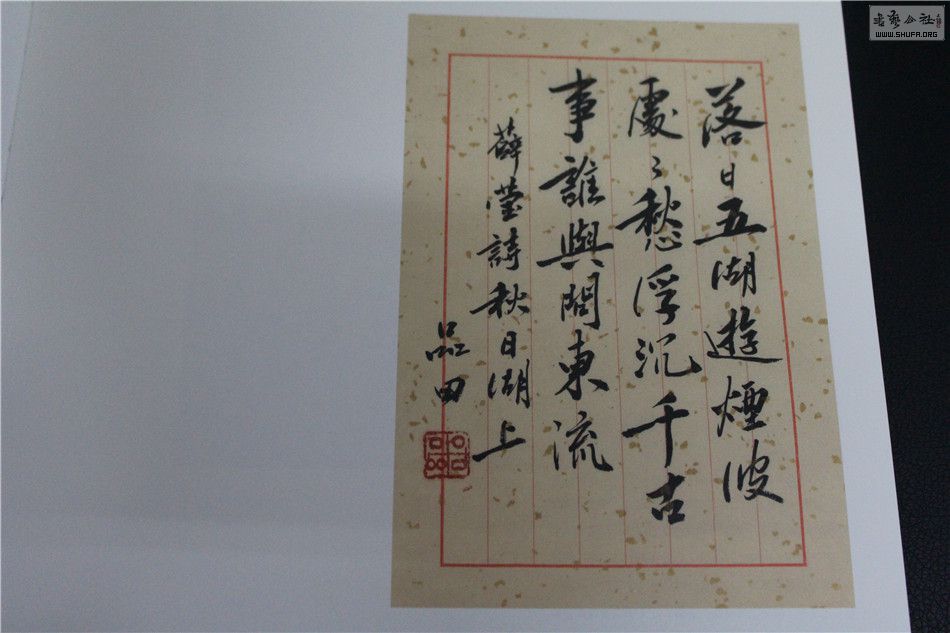 落日五湖遊煙波
處〻愁浮沉千古
事誰與問東流
薛瑩詩秋日湖上
品田
品田
书艺公社
WWW.SHUFA.ORG